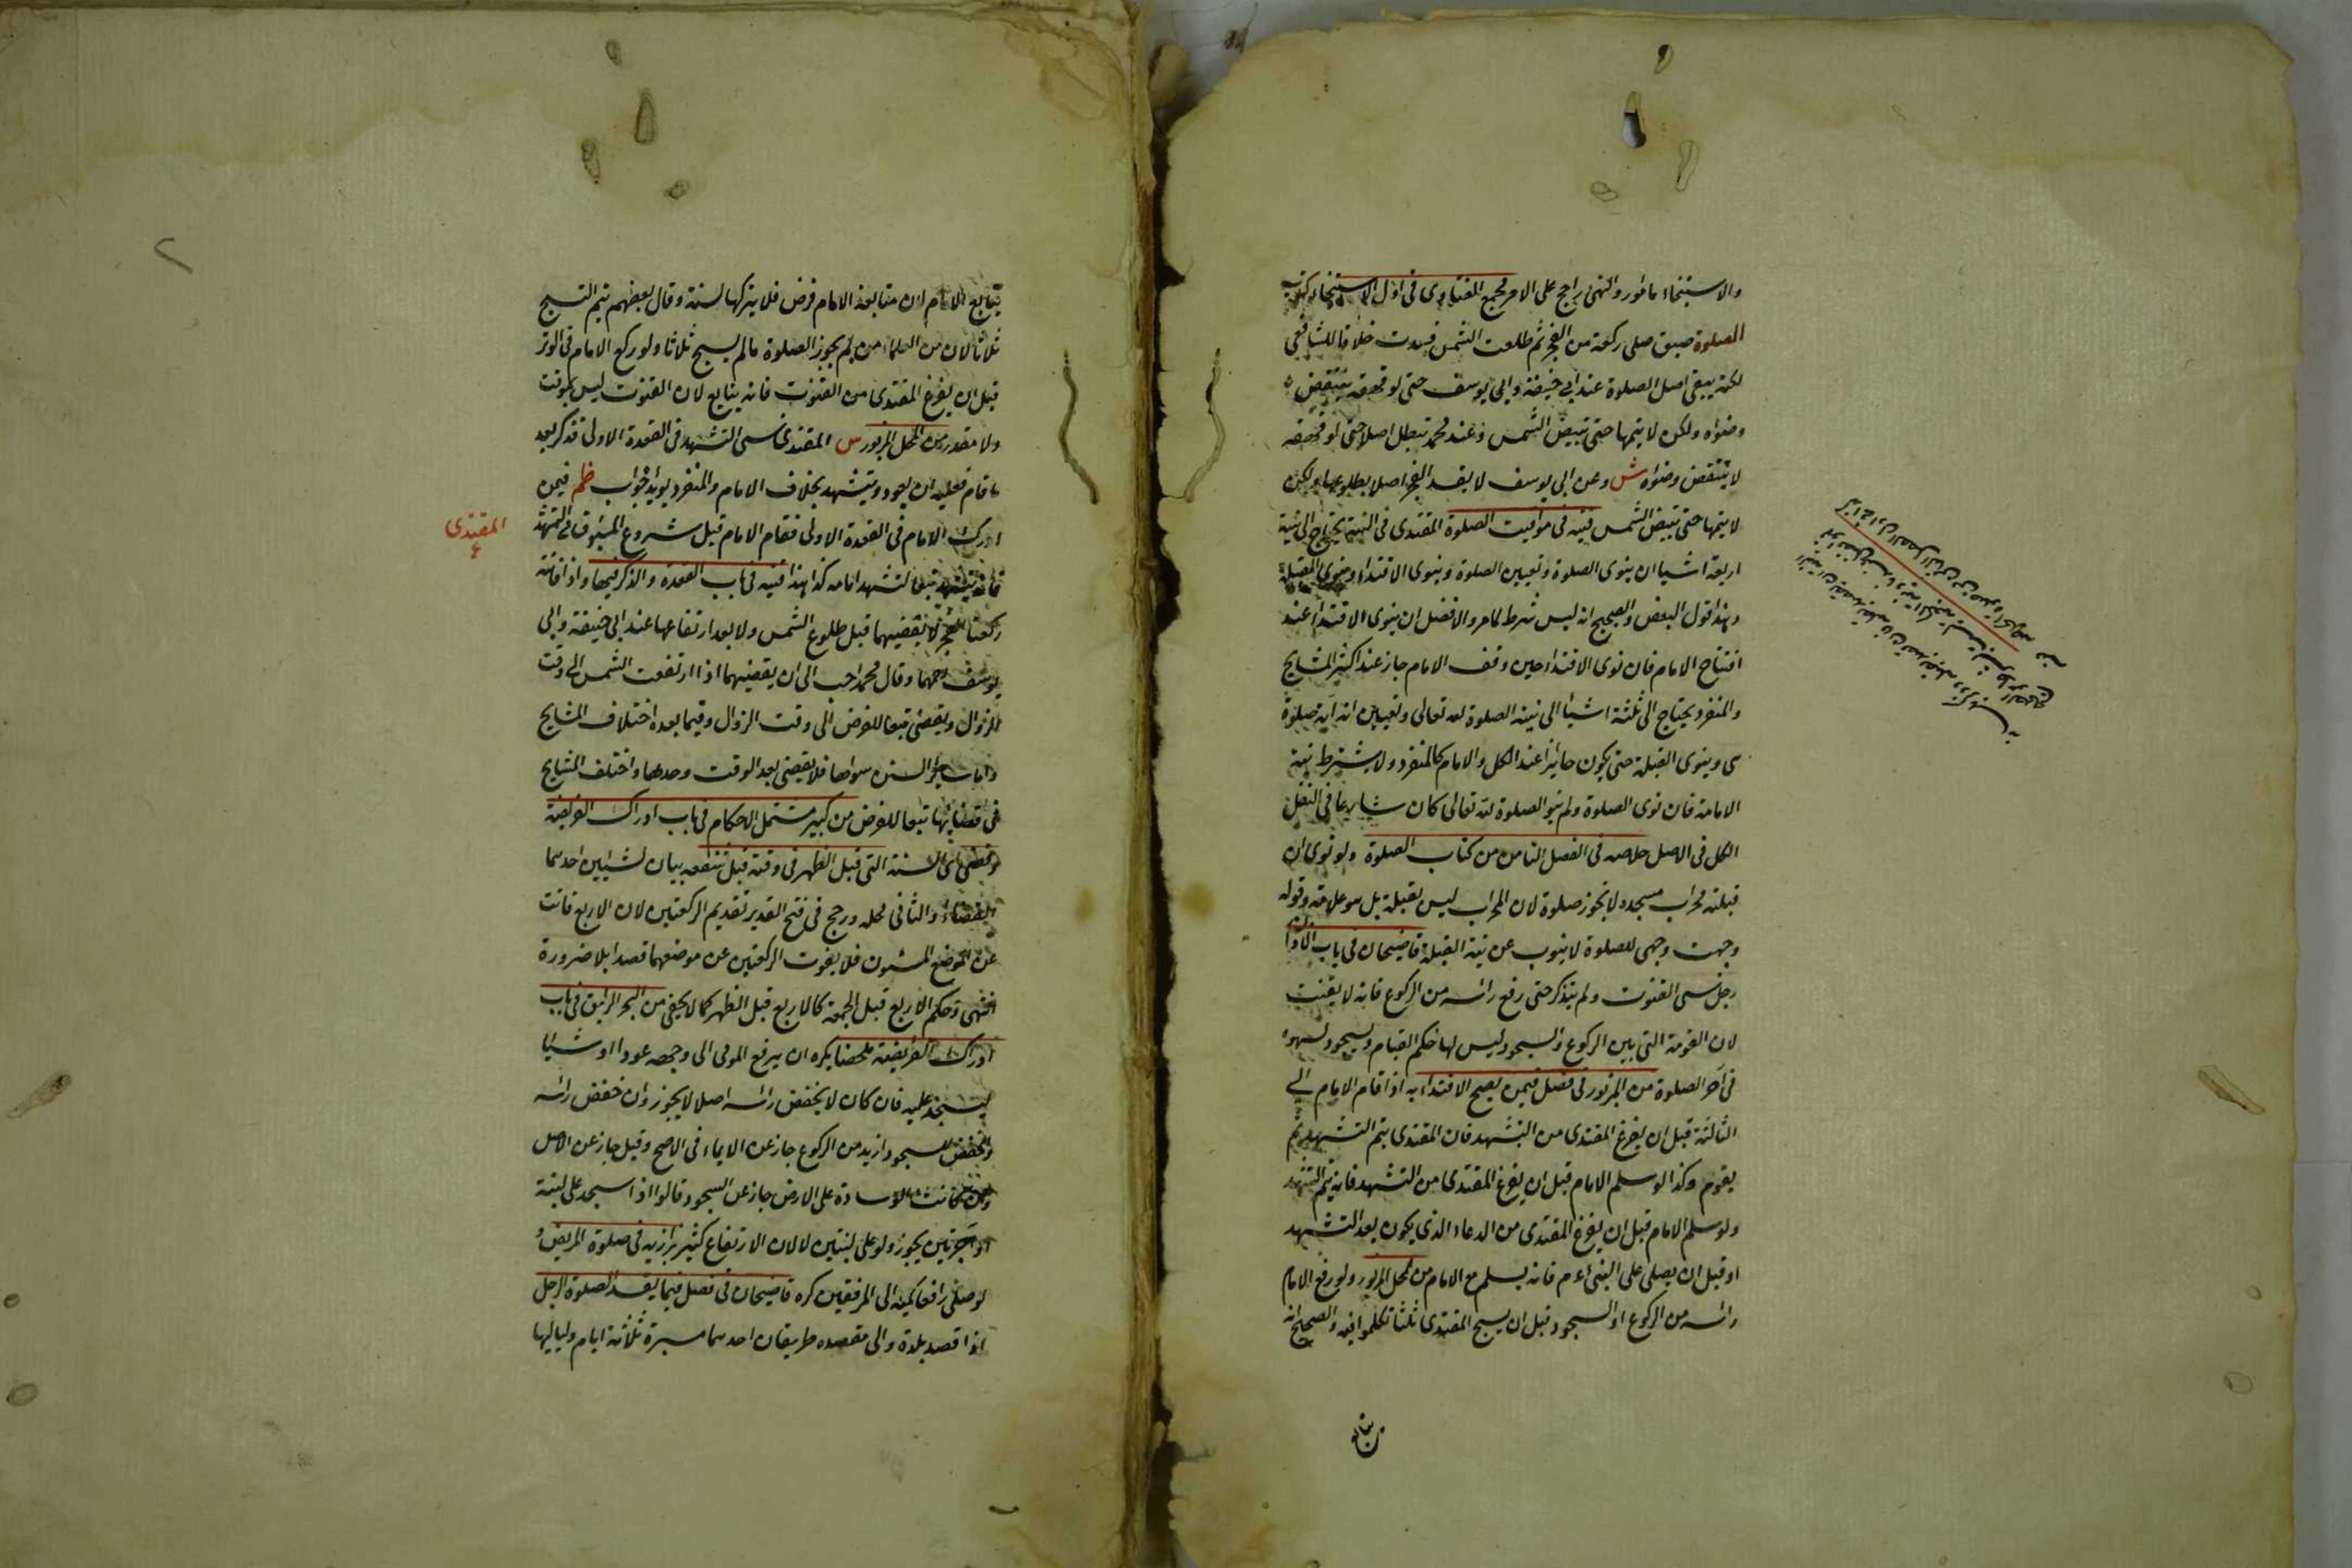 والاستنجاء مأمور والنهى راجح على الامر مجمع الفتاوى فى اول الاستنجاء كتاب
الصلوة صبى صلى ركعة من الفجر ثم طلعت الشمس فسدت خلافا للشافعى
لكنه يبقى اصل الصلوة عند ابى حنيفة وابى يوسف حتى لو قهقه ينتقض
وضوءه ولكن لا يتمها حتى تبيض الشمس وعند محمد تبطل اصلا حتى لو قهقه
لا ينتقض وضوءه ش وعن ابى يوسف لا يفسد الفجر اصلا بطلوعها ولكن
لا يتمها حتى تبيض الشمس قنيه فى مواقيت الصلوة المقتدى فى النية يحتاج الى نية
اربعة اشيا ان ينوى الصلوة وتعيين الصلوة وينوى الاقتداء وينوى القبلة
وهذا قول البعض والصحيح انه ليس شرط كما مر والافضل ان ينوى الاقتداء عند
افتتاح الامام فان نوى الاقتداء حين وقف الامام جاز عند اكثر المشايخ
والمنفرد يحتاج الى ثلثة اشيأ الى نية الصلوة لله تعالى وتعيين انه اية صلوة
هى وينوى القبلة حتى يكون جائزا عند الكل والامام كالمنفرد ولا يشترط نية
الامامة فان نوى الصلوة ولم ينو الصلوة لله تعالى كان شارعا فى النفل
الكل فى الاصل خلاصه فى الفصل الثامن من كتاب الصلوة ولو نوى ان
قبلته محراب مسجده لا تجوز صلوة لان المحراب ليس بقبلة بل هو علامة وقوله
وجهت وجهى للصلوة لا ينوب عن نية القبلة قاضيخان فى باب الاذان
رجل نسى القنوت ولم يتذكر حتى رفع راسه من الركوع فانه لا يقنت
لان القومة التى بين الركوع والسجود ليس لها حكم القيام ويسجود لسهوه
فى آخر الصلوة من المزبور فى فصل فيمن يصح الاقتداء به اذا قام الامام الى
الثالثة قبل ان يفرغ المقتدى من التشهد فان المقتدى يتم التشهد ثم
يقوم وكذا لو سلم الامام قبل ان يفرغ المقتدى من التشهد فانه يتم التشهد
ولو سلم الامام قبل ان يفرغ المقتدى من الدعاء الذى يكون بعد التشهد
او قبل ان يصلى على النبى عم فانه يسلم مع الامام من المحل المزبور ولو رفع الامام
راسه من الركوع او السجود قبل ان يسبح المقتدى ثلثا تكلموا فيه والصحيح انه
يتابع الامام لان متابعة الامام فرض فلا يتركها لسنة وقال بعضهم يتم التسبيح
ثلاثا لان من العلماء من لم يجوز الصلوة ما لم يسبح ثلاثا ولو ركع الامام فى الوتر
قبل ان يفرغ المقتدى من القنوت فانه يتابع لان القنوت ليس بموقت
ولا مقدر من المحل المزبور س المقتدى نسى التشهد فى القعدة الاولى فذكر بعد
ما قام فعليه ان يعود ويتشهد بخلاف الامام والمنفرد يؤيد جواب ظم فيمن
المقتدى
ادرك الامام فى القعدة الاولى فقام الامام قبل شروع المسبوق فى التشهد
فانه يتشهد تبعا لتشهد امامه فكذا هذا قنيه فى باب القعدة والذكر فيها واذا فاتته
ركعتا الفجر لا يقضيهما قبل طلوع الشمس ولا بعد ارتفاعها عند ابى حنيفة وابى
يوسف رحمهما وقال محمد احب الى ان يقضيهما اذا ارتفعت الشمس الى وقت
الزوال ويقضى تبعا للفرض الى وقت الزوال وفيما بعده اختلاف المشايخ
واما سائر السنن سواها فلا يقضى بعد الوقت وحدها واختلف المشايخ
فى قضائها تبعا للفرض من كبير مشتمل الاحكام فى باب ادراك الفريضة
وقضى السنة التى قبل الظهر فى وقته قبل شفعه بيان لشيئين احدهما
القضاء والثانى محله ورجح فى فتح القدير تقديم الركعتين لان الاربع فاتت
عن الموضع المسنون فلا يفوت الركعتين عن موضعهما قصدا بلا ضرورة
انتهى وحكم الاربع قبل الجمعة كالاربع قبل الظهر كما لا يخفى من البحر الرايق فى باب
ادراك الفريضة ملخصا يكره ان يرفع المومى الى وجهه عودا او شيئا
ليسجد عليه فان كان لا يخفض راسه اصلا لا يجوز وان خفض راسه
وخفض للسجود ازيد من الركوع جاز عن الايماء فى الاصح وقيل جاز عن الاصل
وان كانت الوسادة على الارض جاز عن السجود قالوا اذا سجد على لبنة
او آجرتين يجوز ولو على لبنتين لا لان الارتفاع كثير بزازيه فى صلوة المريض و
لو صلى رافعا كميه الى المرفقين كره قاضيخان فى فصل فيما يفسد الصلوة الرجل
اذا قصد بلدة والى مقصده طريقان احدهما مسيرة ثلاثة ايام ولياليها